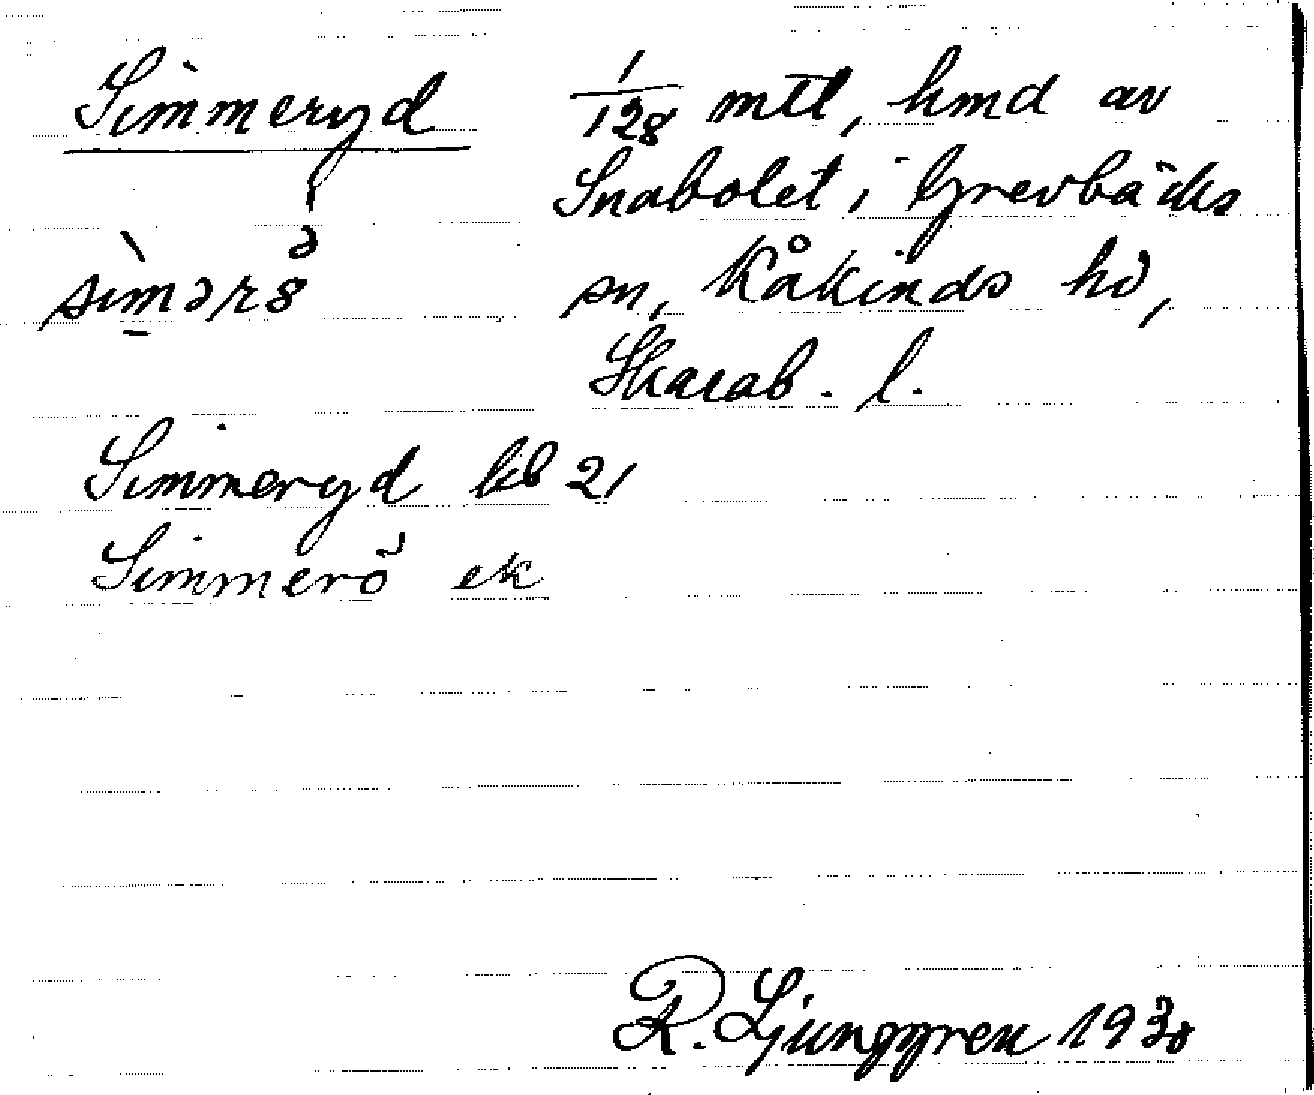 Simmeryd 1/128 mtl, hmd av
Snabolet i Grevbäcks
sn, Kåkinds hd,
Skarab. l.
Simmeryd kb 21
Simmerö ek
R. Ljunggren 1930